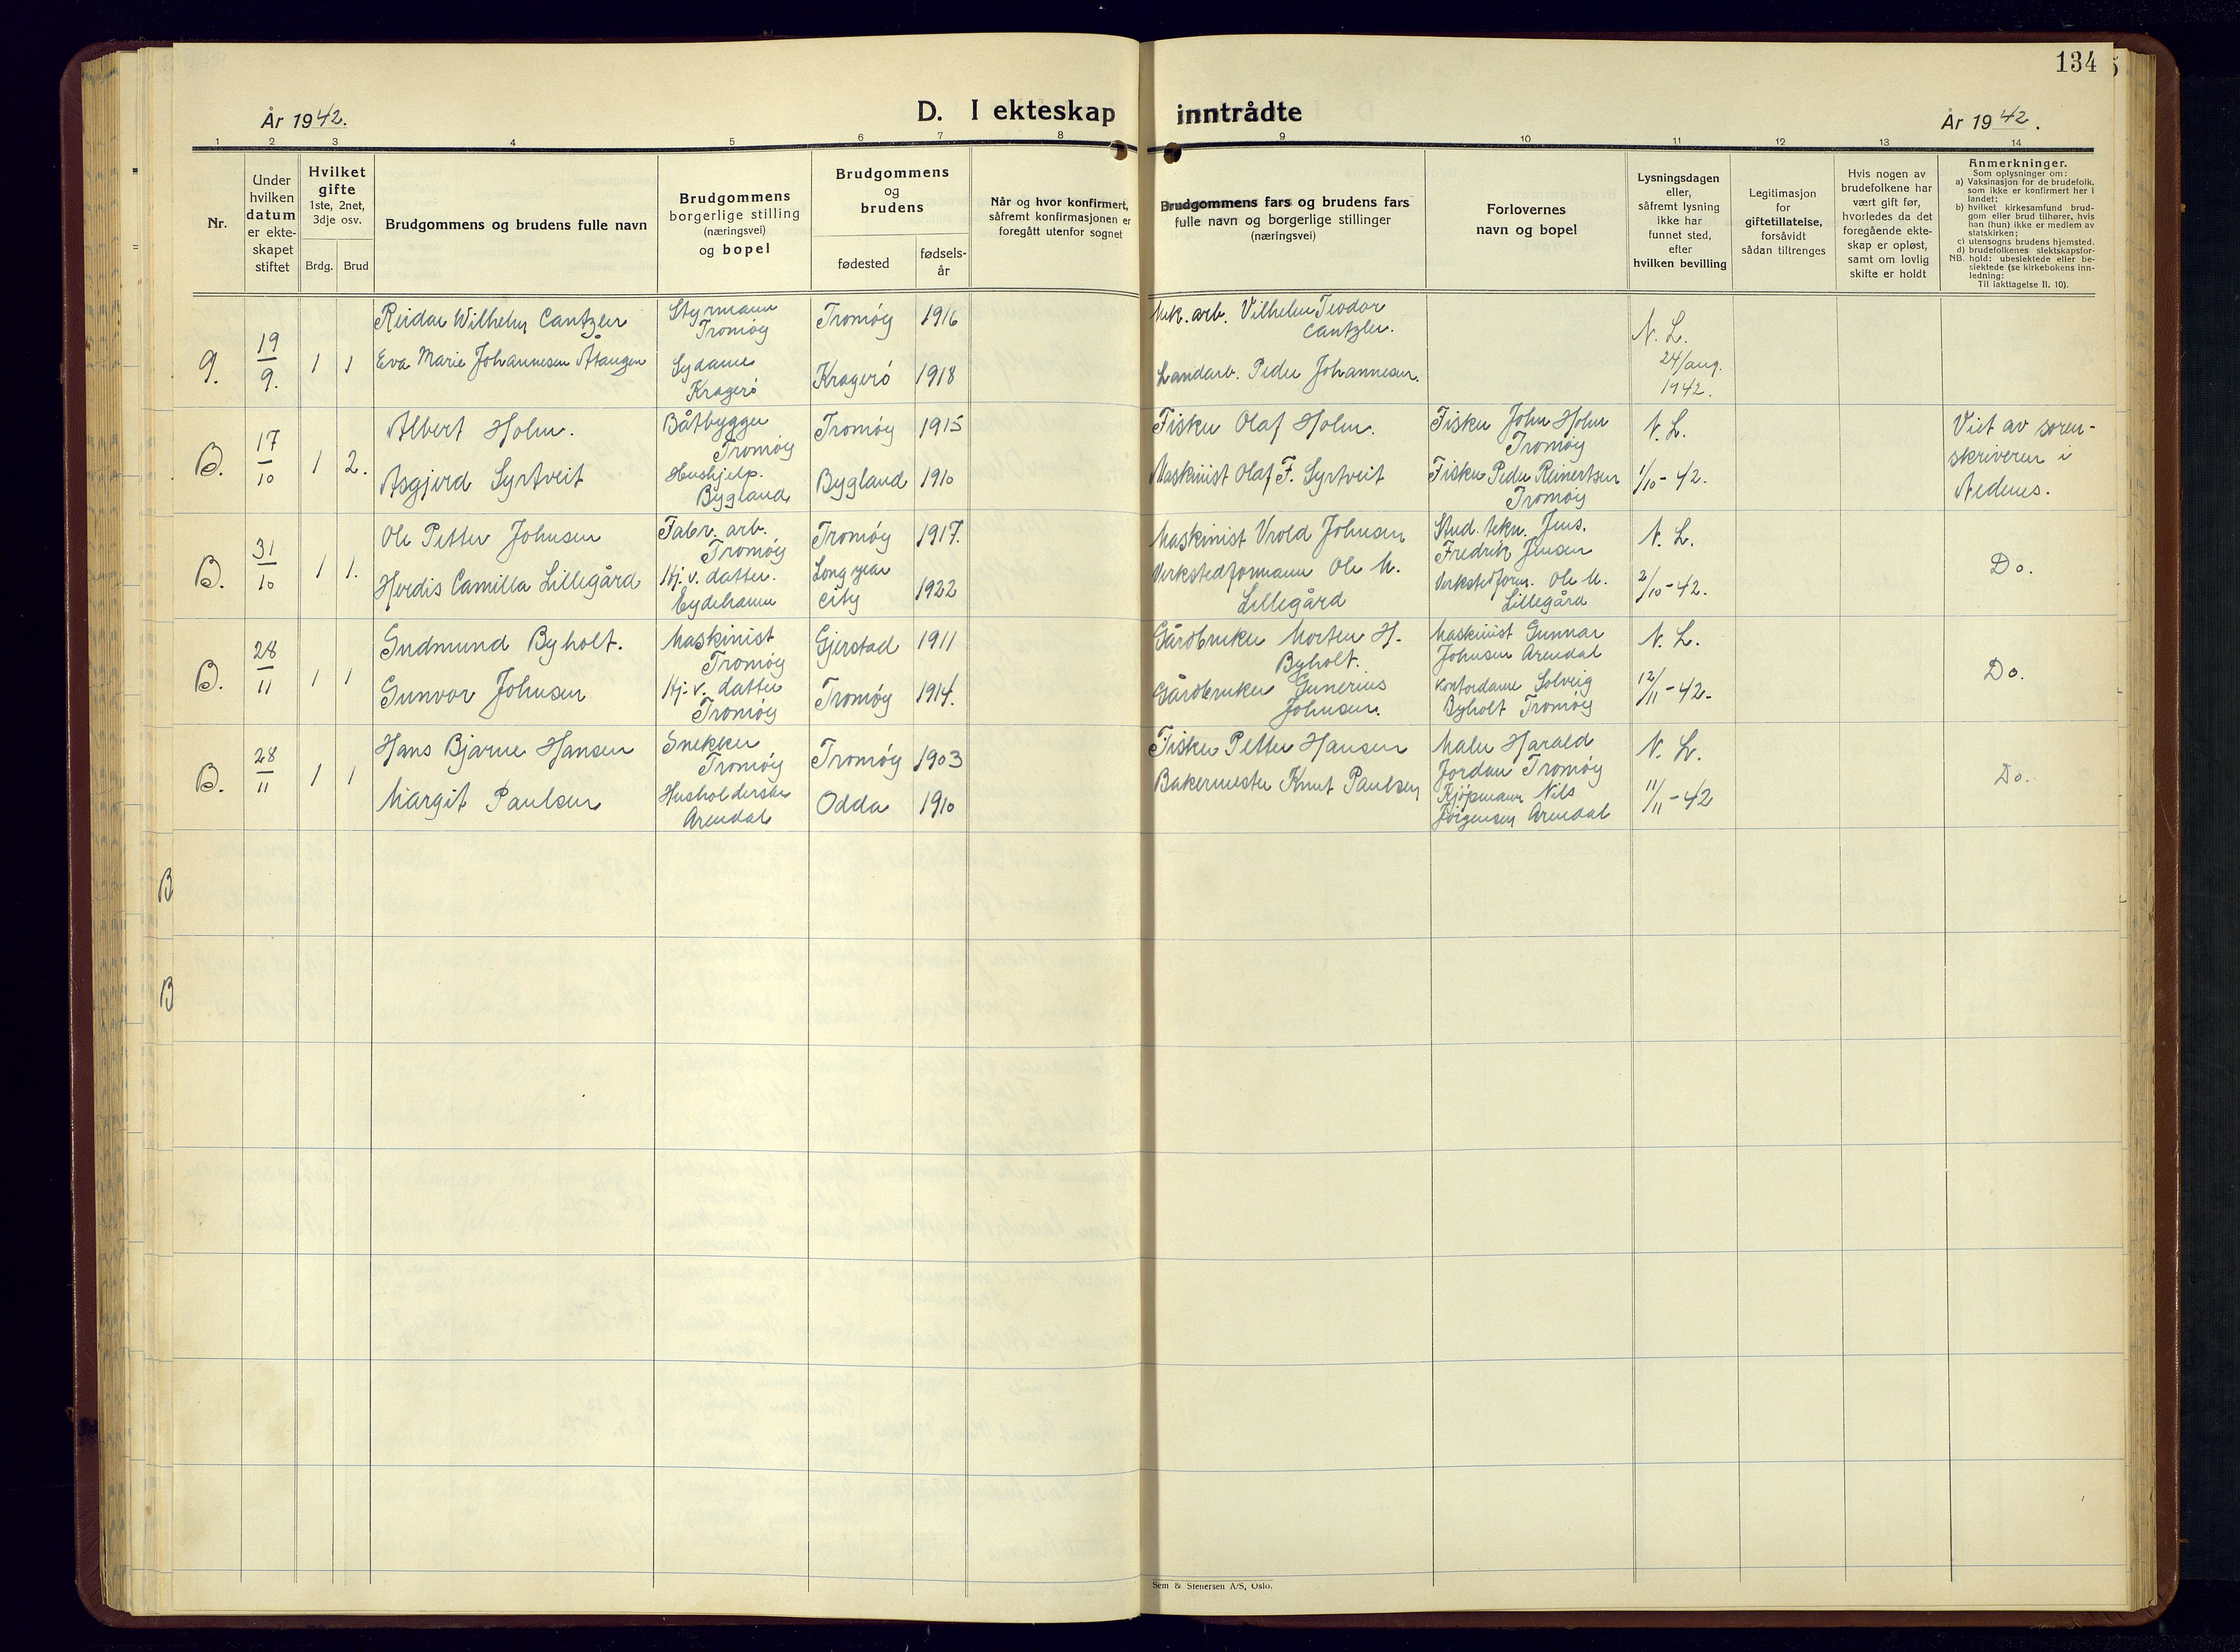 134
År 1942.
D. I ekteskap inntrådte
År 1942.
1 2 3 4 5 6 7 8 9 10 11 12 13 14
Nr.
Under
hvilken
datum
er ekte-
skapet
stiftet
Hvilket
gifte
1ste, 2net,
3dje osv.
Brdg. Brud
Brudgommens og brudens fulle navn
Brudgommens
borgerlige stilling
(næringsvei)
og bopel
Brudgommens
og
brudens
fødested
fødsels-
år
Når og hvor konfirmert,
såfremt konfirmasjonen er
foregått utenfor sognet
Brudgommens fars og brudens fars
fulle navn og borgerlige stillinger
(næringsvei)
Forlovernes
navn og bopel
Lysningsdagen
eller,
såfremt lysning
ikke har
funnet sted,
efter
hvilken bevilling
Legitimasjon
for
giftetillatelse,
forsåvidt
sådan tiltrenges
Hvis nogen av
brudefolkene har
vært gift før,
hvorledes da det
foregående ekte-
skap er opløst,
samt om lovlig
skifte er holdt
Anmerkninger.
Som oplysninger om:
a) Vaksinasjon for de brudefolk,
som ikke er konfirmert her i
landet;
b) hvilket kirkesamfund brud-
gom eller brud tilhører, hvis
han (hun) ikke er medlem av
statskirken;
c) utensogns brudens hjemsted.
d) brudefolkenes slektskapsfor-
NB. hold: ubeslektede eller be-
slektede (se kirkebokens inn-
ledning:
Til iakttagelse II. 10).
9.
19/9.
1 1
Reidar Wilhelm Cantzler
Styrmann
Tromøy
Tromøy 1916
Mek. arb. Vilhelm Teodor
Cantzler.
N. L.
24/aug.
1942.
Eva Marie Johannesen Åtangen
Sydame
Kragerö
Kragerö 1918
Landarb. Peder Johannesen.
B.
17/10
1 2.
Albert Holm.
Båtbygger
Tromøy
Tromøy 1915
Fisker Olaf Holm.
Fisker John Holm
Tromøy
N. L.
1/10-42.
Viet av soren-
skriveren i
Nedenes.
Asgjerd Syrtveit
Hushjelp.
Bygland
Bygland 1910
Maskinist Olaf F. Syrtveit
Fisker Peder Reinertsen
Tromøy
B.
31/10
1 1.
Ole Petter Johnsen
Fabr. arb.
Tromøy
Tromøy 1917.
Maskinist Vrold Johnsen
Stud. tekn. Jens.
Fredrik Jensen
N. L.
2/10-42.
Do.
Herdis Camilla Lillegård
Hj. v. datter.
Eydehavn
Longyear
city 1922
Verkstedformann Ole M.
Lillegård
Verkstedform. Ole M.
Lillegård
B.
28/11
1 1
Gudmund Byholt.
Maskinist
Tromøy
Gjerstad 1911
Gårdbruker Morten H.
Byholt.
Maskinist Gunnar
Johnsen Arendal
N. L.
12/11-42.
Do.
Gunvor Johnsen
Hj. v. datter
Tromøy
Tromøy 1914.
Gårdbruker Gunerius
Johnsen.
Kontordame Solveig
Byholt Tromøy
B.
28/11
1 1
Hans Bjarne Hansen
Snekker
Tromøy
Tromøy 1903
Fisker Petter Hansen
Maler Harald
Jordan Tromøy
N. L.
11/11-42
Do.
Margit Paulsen
Husholderske
Arendal
Odda 1910
Bakermester Knut Paulsen
Kjöpmann Nils
Jörgensen Arendal
B
B
Sem & Stenersen A/S, Oslo.